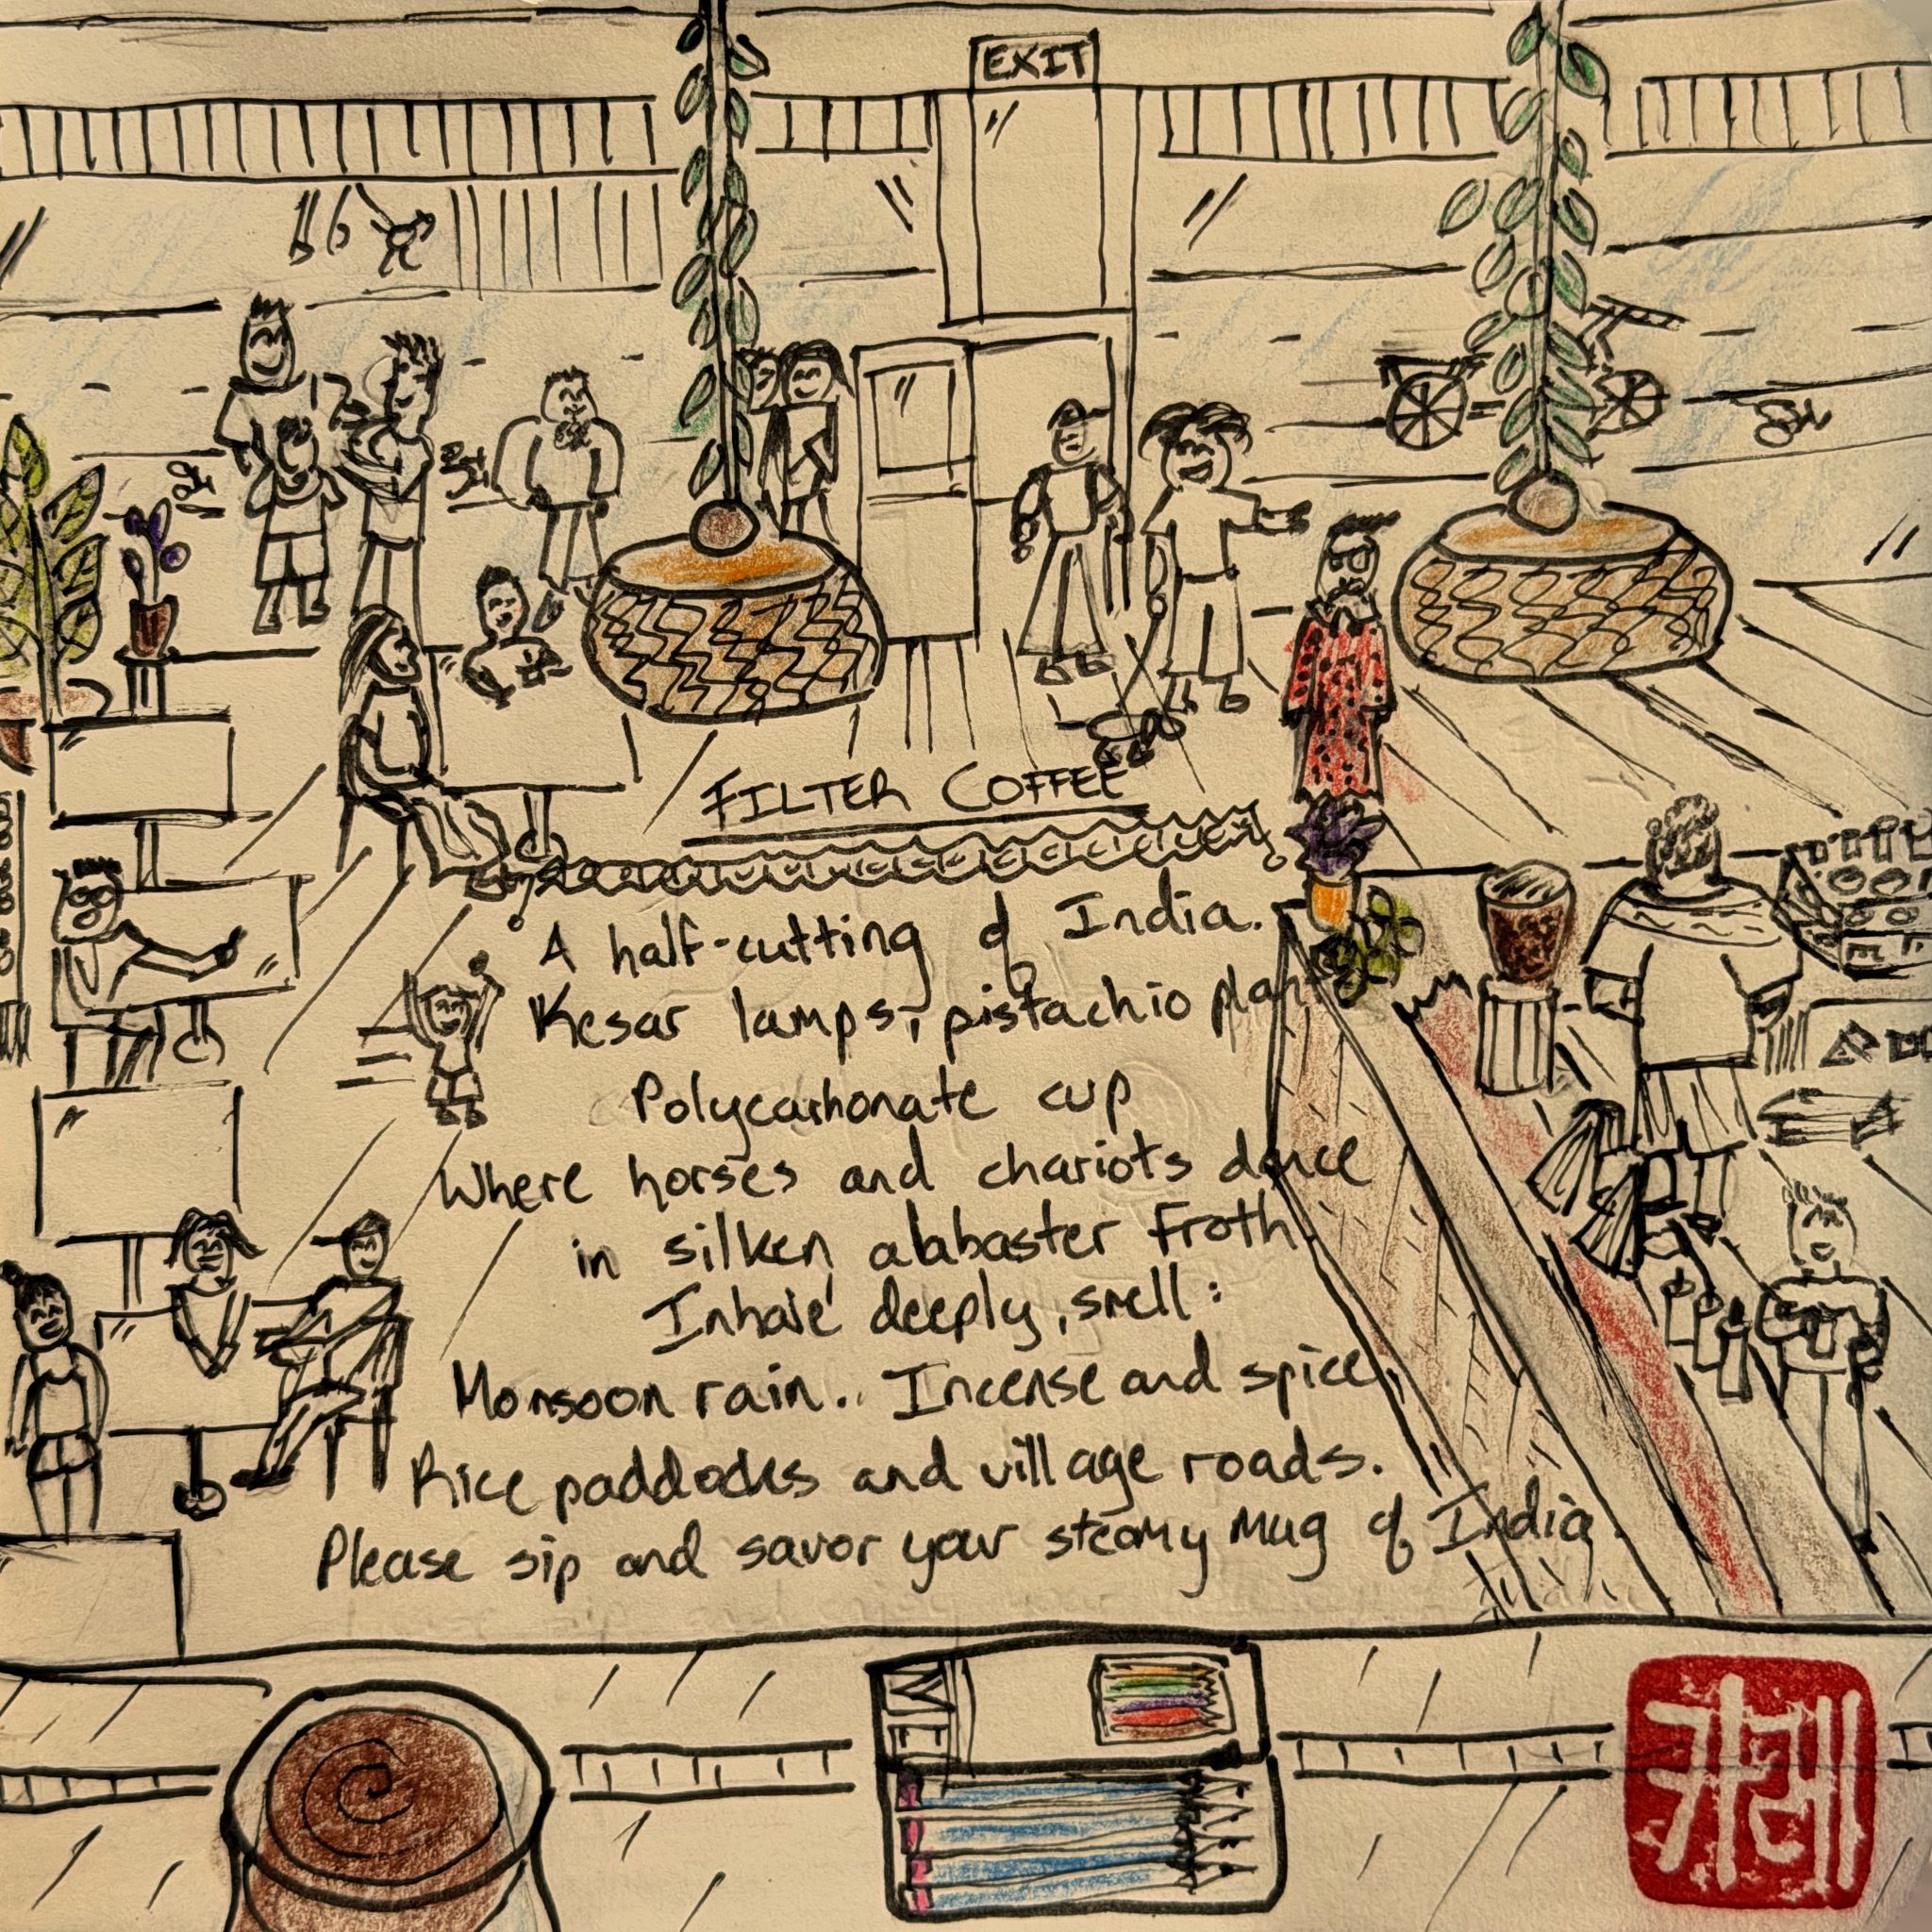 EXIT
FILTER COFFEE
A half-cutting of India.
Kesar lamps, pistachio plants
Polycarbonate cup
Where horses and chariots dance
in silken alabaster froth.
Inhale deeply, smell:
Monsoon rain.. Incense and spice,
Rice paddocks and village roads.
Please sip and savor your steamy mug of India.
카레